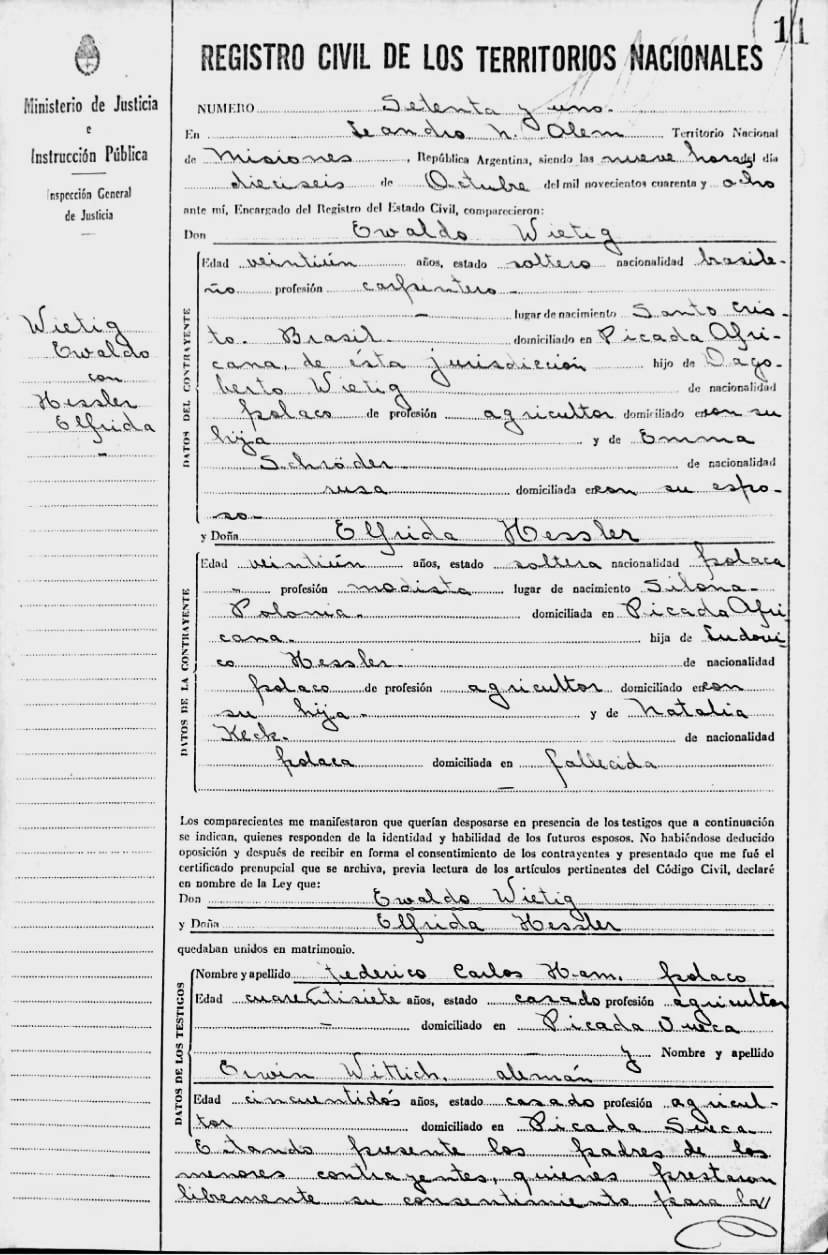 11
REGISTRO CIVIL DE LOS TERRITORIOS NACIONALES
Ministerio de Justicia
e
Instrucción Pública
Inspección General
de Justicia
NUMERO Setenta y uno.
En Leandro N. Alem Territorio Nacional
de Misiones, República Argentina, siendo las nueve horas del día
dieciseis de Octubre del mil novecientos cuarenta y ocho
ante mí, Encargado del Registro del Estado Civil, comparecieron:
Don Ewaldo Wietig
Wietig
Ewaldo
con
Hessler
Elfrida
-
DATOS DEL CONTRAYENTE
Edad veintiún años, estado soltero nacionalidad brasile-
ño profesión carpintero -
- lugar de nacimiento Santo Cris-
to. Brasil. domiciliado en Picada Afri-
cana, de ésta jurisdicción hijo de Dago-
berto Wietig de nacionalidad
polaco de profesión agricultor domiciliado en con su
hija y de Emma
Schröder de nacionalidad
rusa domiciliada en con su espo-
so-
y Doña Elfrida Hessler
DATOS DE LA CONTRAYENTE
Edad veintiún años, estado soltera nacionalidad polaca
- profesión modista lugar de nacimiento Silona-
Polonia. domiciliada en Picada Afri
cana- hija de Ludovi
co Hessler de nacionalidad
polaco de profesión agricultor domiciliado en con
su hija - y de Natalia
Keck. de nacionalidad
polaca domiciliada en fallecida
-
Los comparecientes me manifestaron que querían desposarse en presencia de los testigos que a continuación
se indican, quienes responden de la identidad y habilidad de los futuros esposos. No habiéndose deducido
oposición y después de recibir en forma el consentimiento de los contrayentes y presentado que me fué el
certificado prenupcial que se archiva, previa lectura de los artículos pertinentes del Código Civil, declaré
en nombre de la Ley que:
Don Ewaldo Wietig
y Doña Elfrida Hessler
quedaban unidos en matrimonio.
DATOS DE LOS TESTIGOS
Nombre y apellido Federico Carlos Ham. polaco
Edad cuarentisiete años, estado casado profesión agricultor
- domiciliado en Picada Sueca
- y Nombre y apellido
Erwin Wittich. alemán
Edad cincuentidós años, estado casado profesión agricul-
tor domiciliado en Picada Sueca
Estando presente los padres de los
menores contrayentes, quienes prestaron
libremente su consentimiento para la//